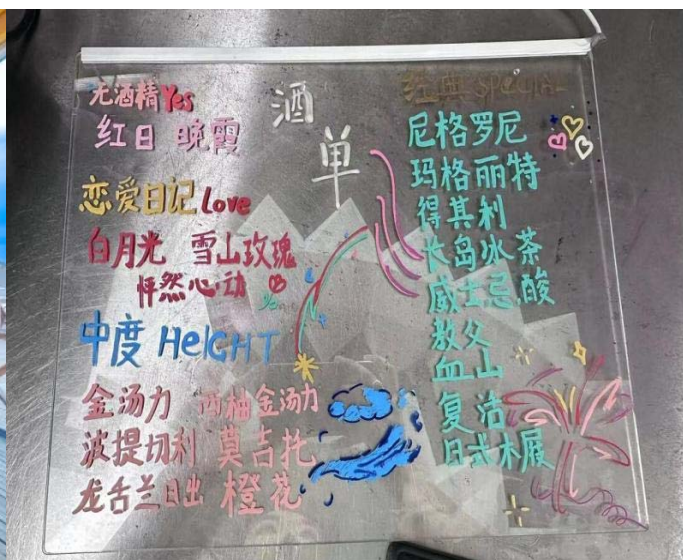 酒单
无酒精Yes
红日 晚霞
恋爱日记Love
白月光 雪山玫瑰
怦然心动
中度 HeIGHT
金汤力 西柚金汤力
波提切利 莫吉托
龙舌兰日出 橙花
经典 SPeCIAL
尼格罗尼
玛格丽特
得其利
长岛冰茶
威士忌酸
教父
血山
复活
日式木屐